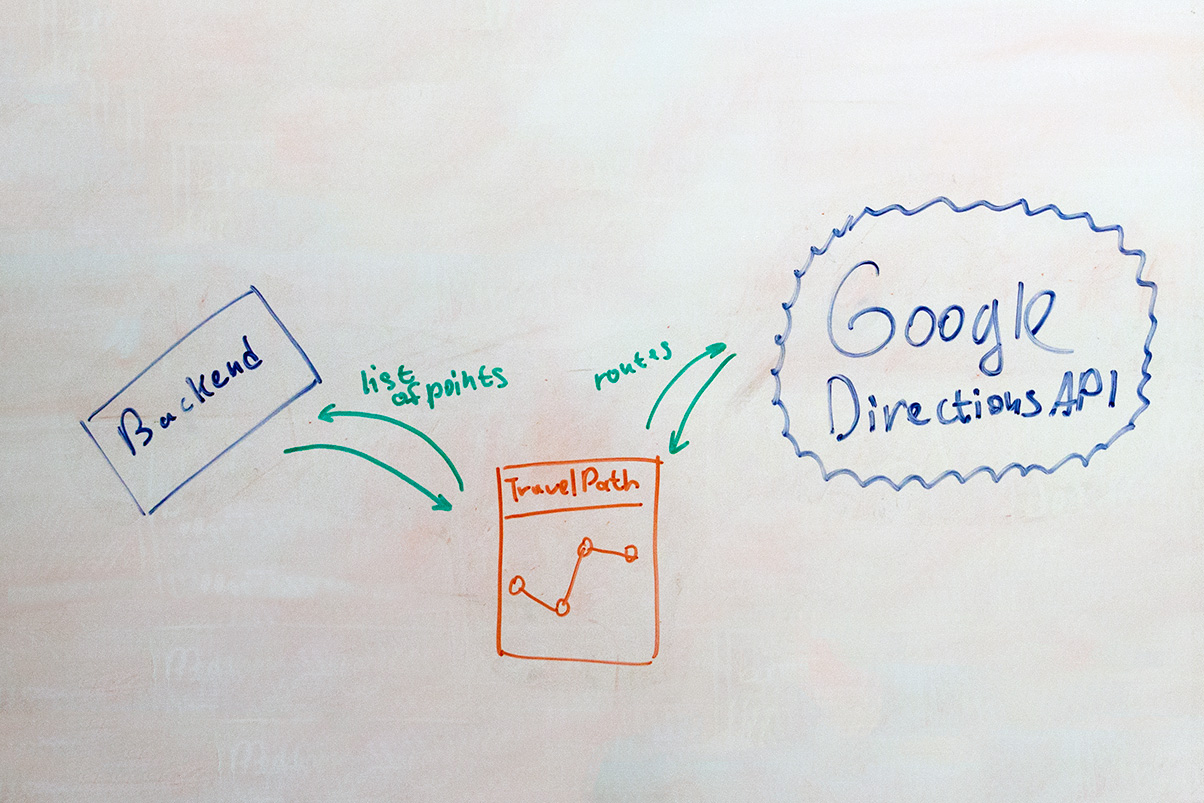 Backend
list
of points
routes
Google
Directions API
TravelPath